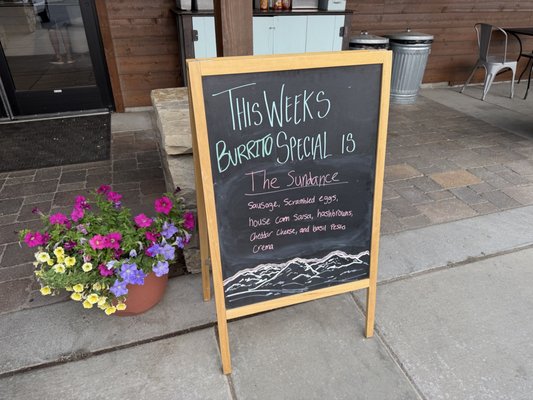 This Weeks
Burrito Special is
The Sundance
Sausage, Scrambled eggs,
house corn salsa, hashbrowns,
Cheddar cheese, and basil Pesto
Crema